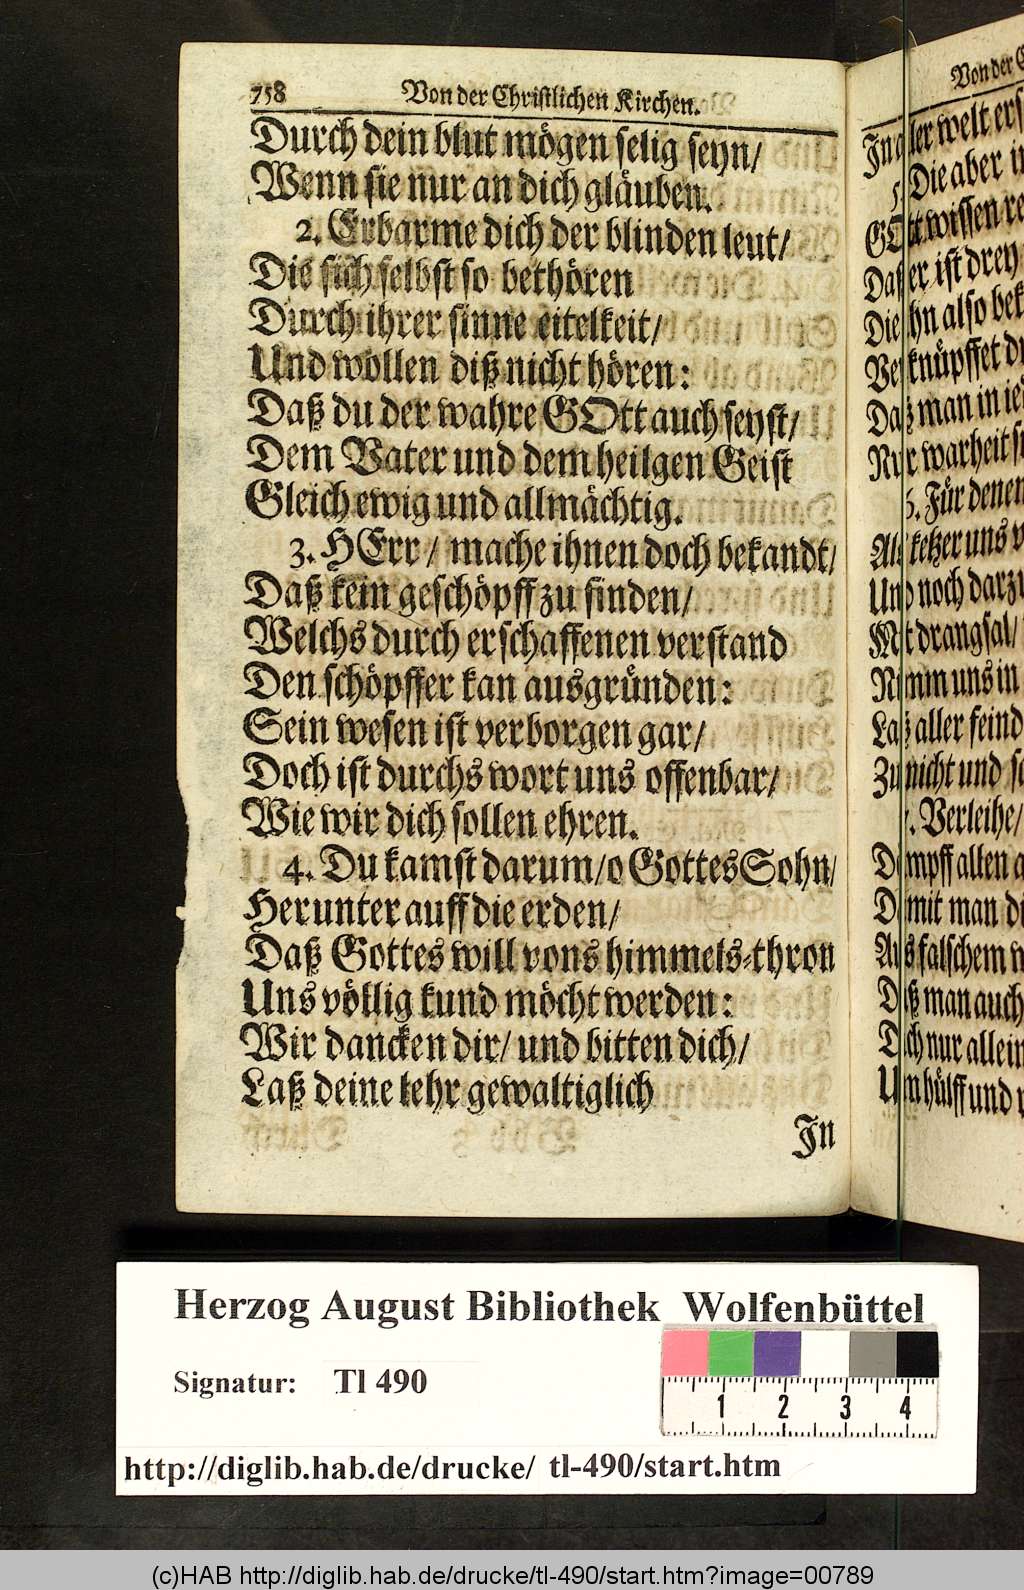 758 Von der Christlichen Kirchen.
Durch dein blut mögen selig seyn/
Wenn sie nur an dich gläuben.
2. Erbarme dich der blinden leut/
Die sich selbst so bethören
Durch ihrer sinne eitelkeit/
Und wollen diß nicht hören:
Daß du der wahre GOtt auch seyst/
Dem Vater und dem heilgen Geist
Gleich ewig und allmächtig.
3. HErr/ mache ihnen doch bekandt/
Daß kein geschöpff zu finden/
Welchs durch erschaffenen verstand
Den schöpffer kan ausgründen:
Sein wesen ist verborgen gar/
Doch ist durchs wort uns offenbar/
Wie wir dich sollen ehren.
4. Du kamst darum/ o Gottes Sohn/
Herunter auff die erden/
Daß Gottes will vons himmels-thron
Uns völlig kund möcht werden:
Wir dancken dir/ und bitten dich/
Laß deine lehr gewaltiglich
In
Von der
In aller welt
Die aber
GOtt wissen
Daß er ist drey
Die ihn also
Verknüpffet
Daß man in
Nur warheit
6. Für denen
Als ketzer uns
Und noch darzu
Mit drangsal/
Nimm uns in
Laß aller feind
Zu nicht und
7. Verleihe/
Dämpff allen
Damit man
Aus falschem
Daß man auch
Dich nur allein
Um hülff und
Herzog August Bibliothek Wolfenbüttel
Signatur: Tl 490
1 2 3 4
http://diglib.hab.de/drucke/ tl-490/start.htm
(c)HAB http://diglib.hab.de/drucke/tl-490/start.htm?image=00789